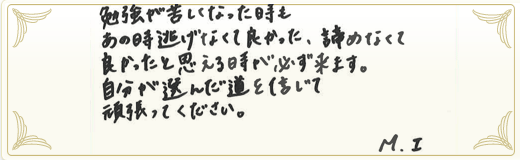 勉強が苦しくなった時も
あの時逃げなくて良かった、諦めなくて
良かったと思える時が必ず来ます。
自分が選んだ道を信じて
頑張ってください。
M. I